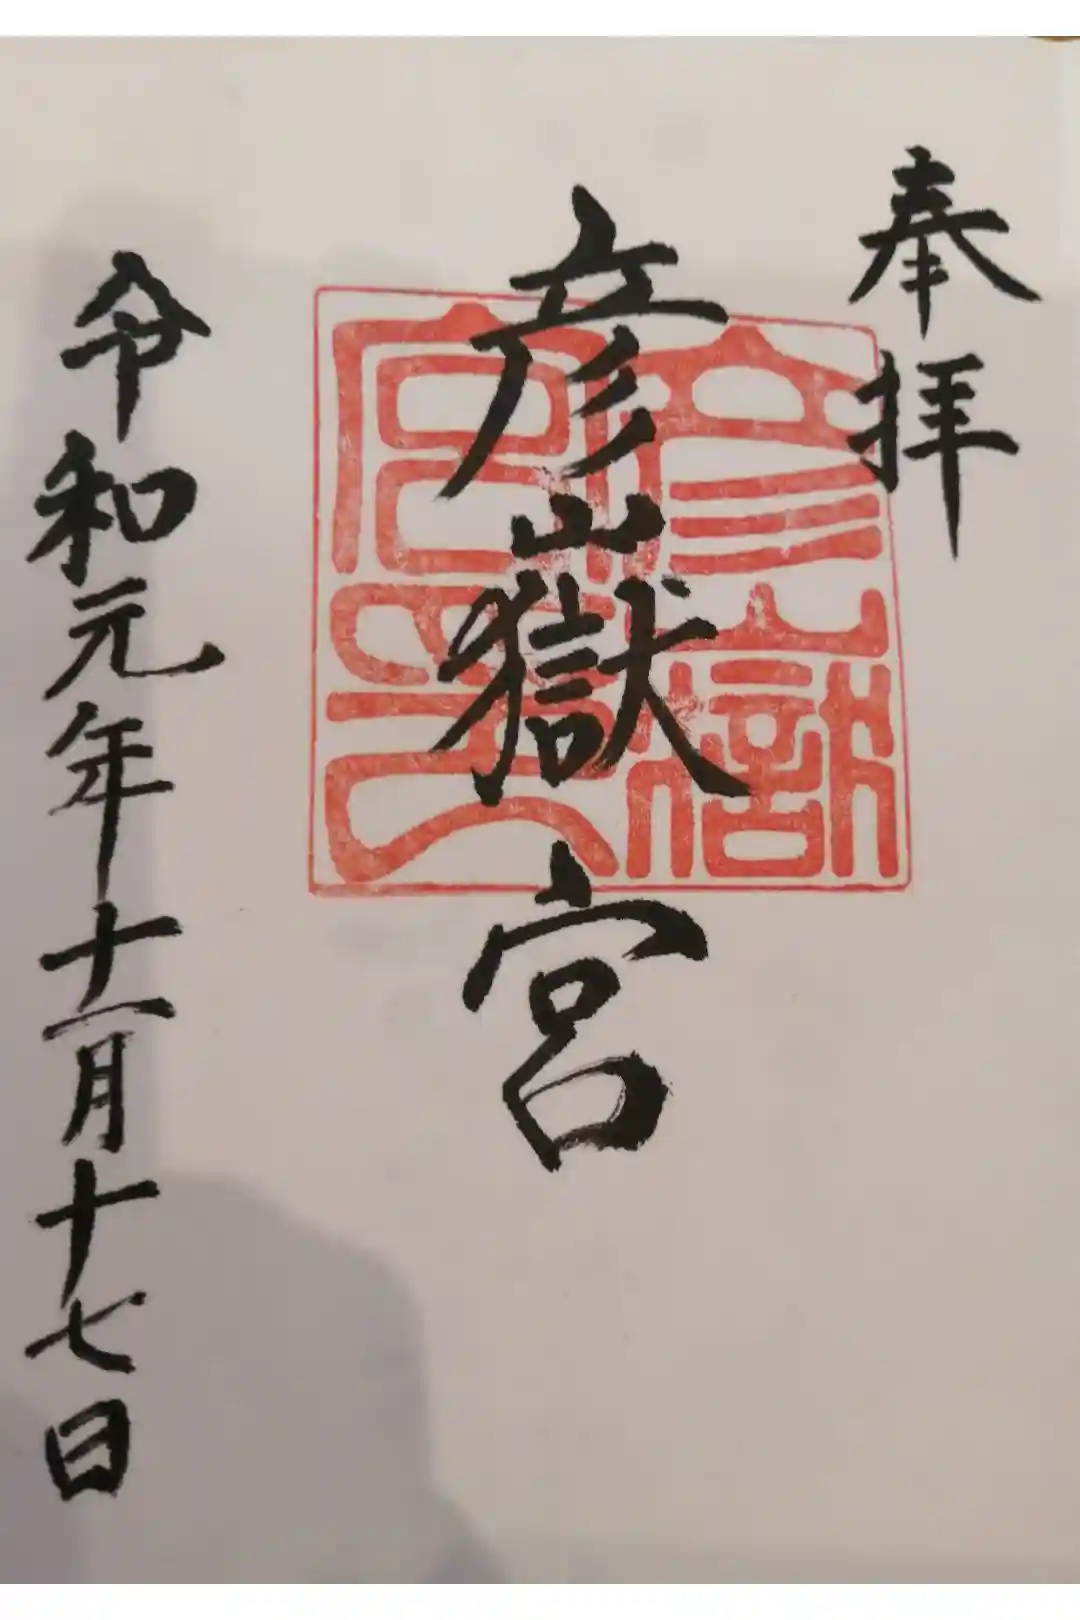 奉拝
彦嶽宮
彦嶽
宮印
令和元年十一月十七日